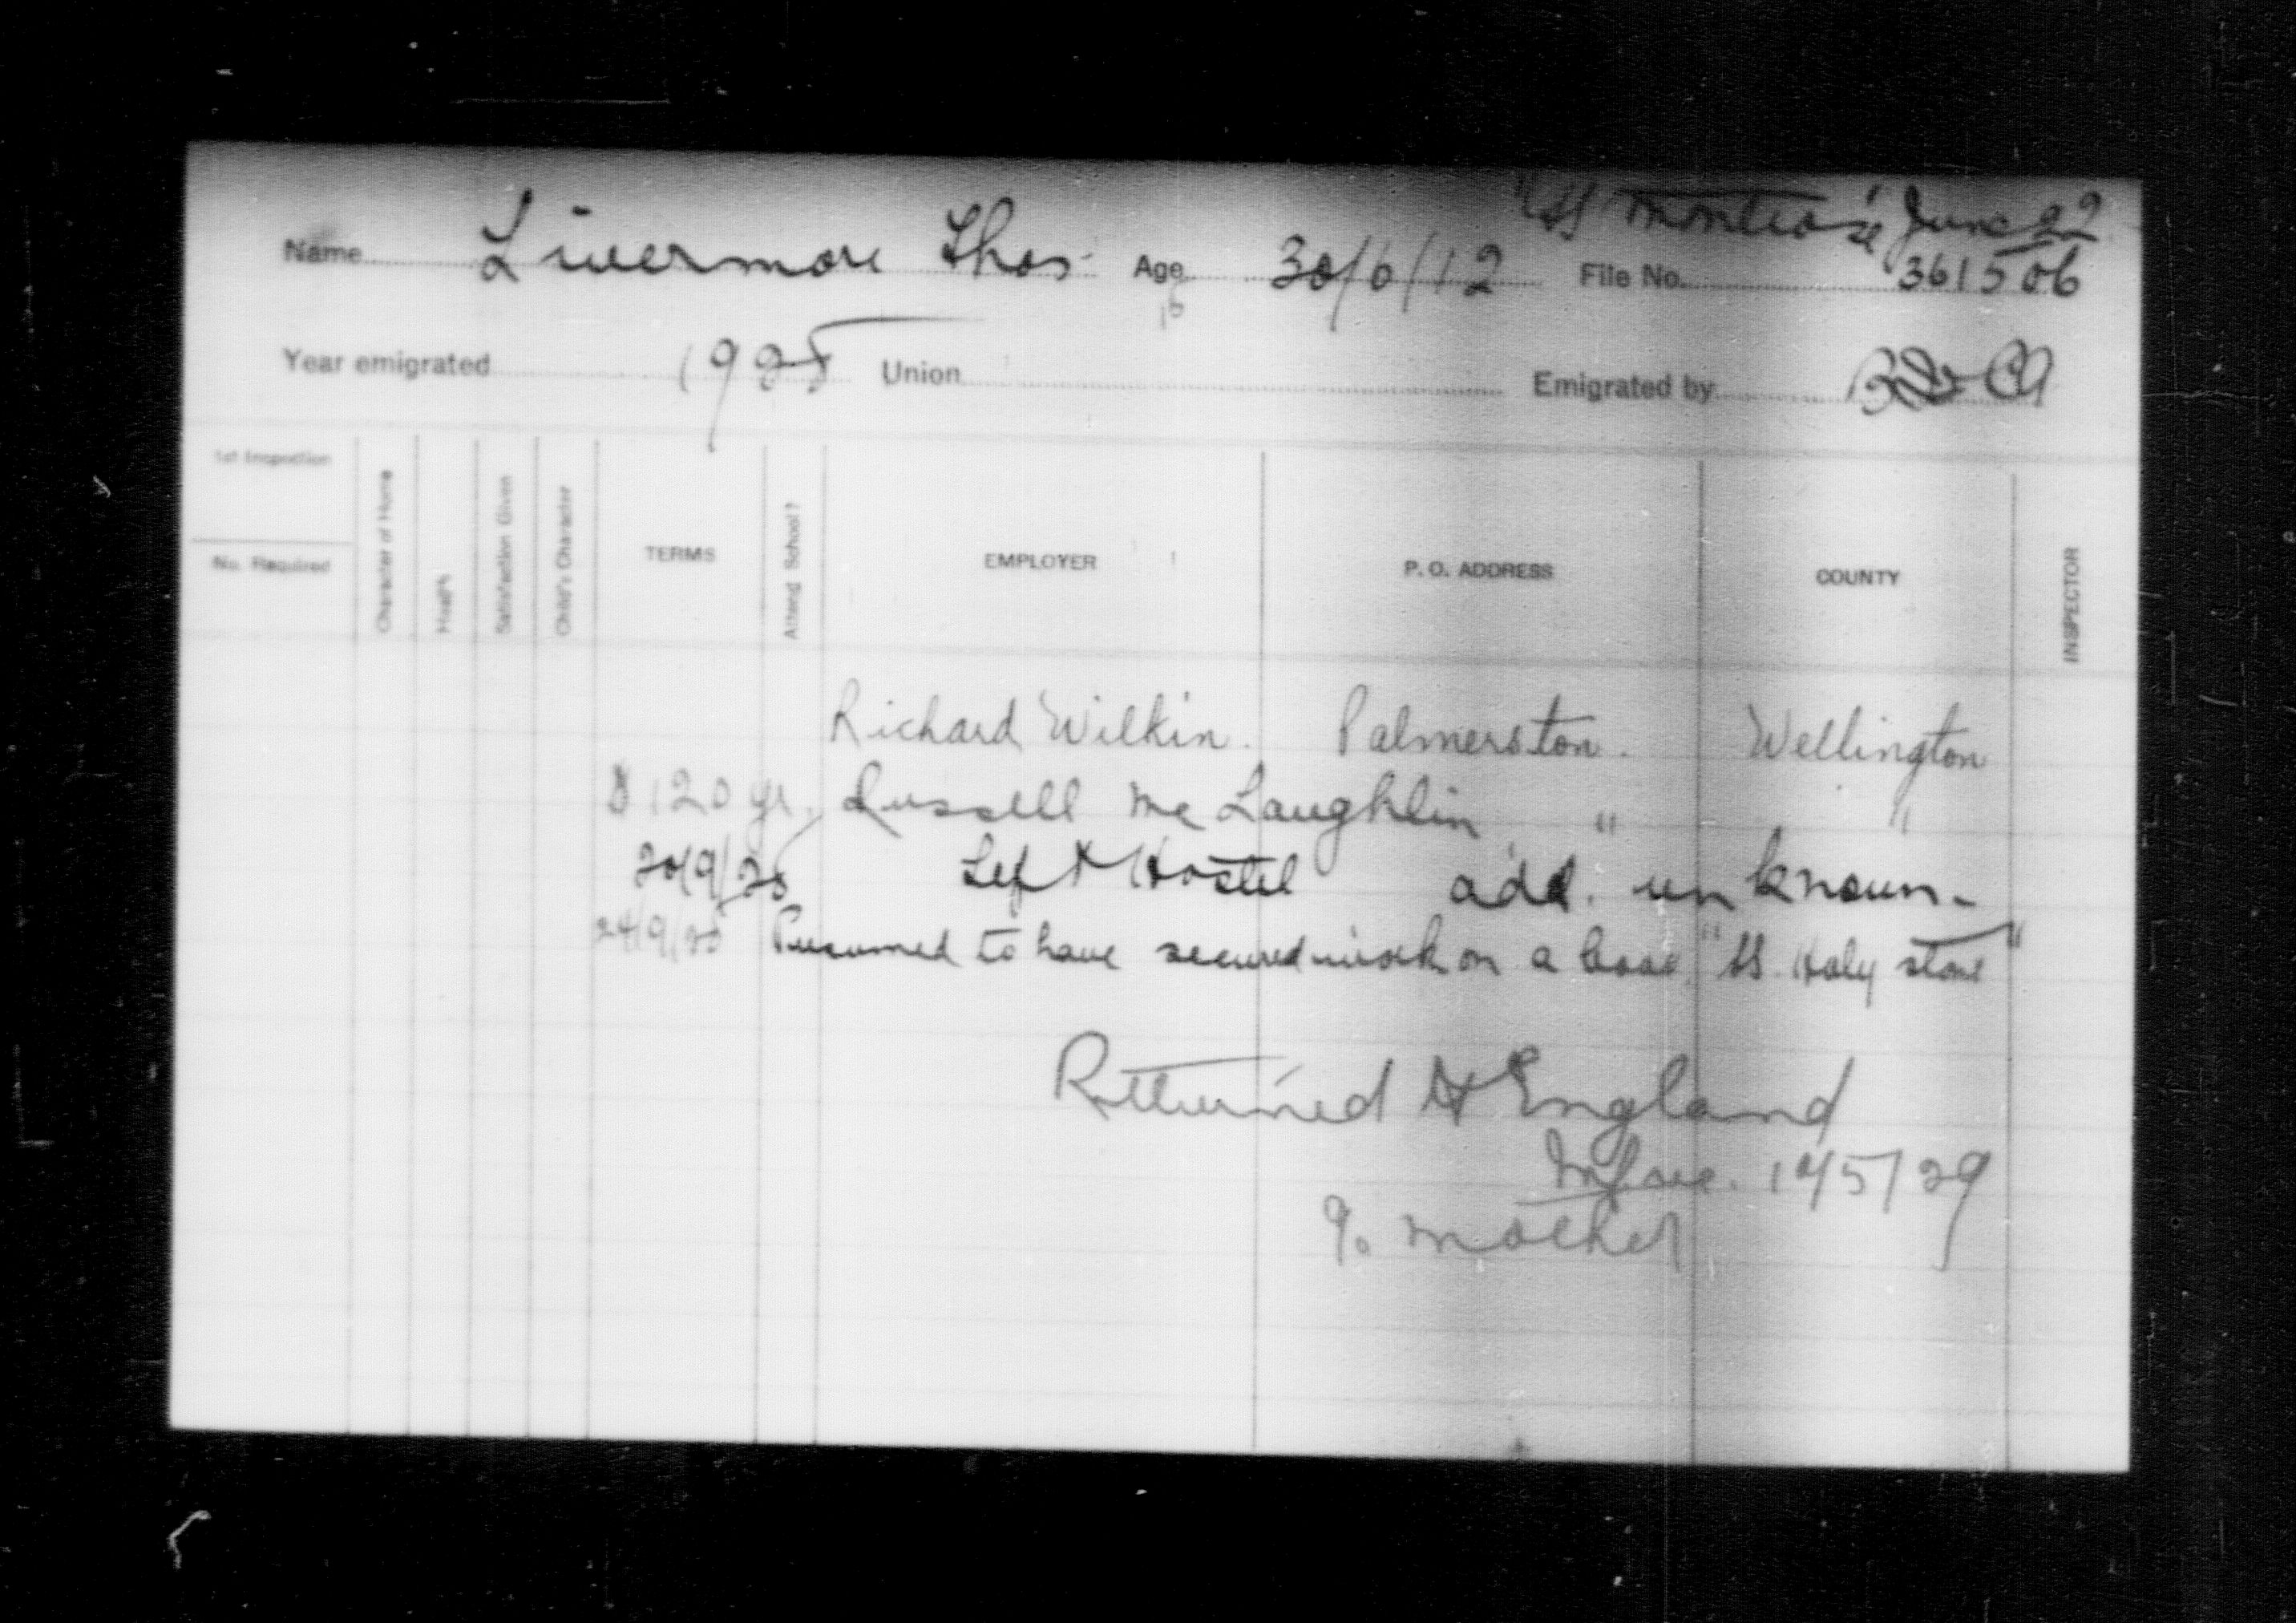 "SS Montrose" June 22
Name Livermore Thos. Age 30/6/12 File No. 361506
16
Year emigrated 1928 Union Emigrated by
1st Inspection
No. Required
Character of Home
Health
Satisfaction Given
Child's Character
TERMS
Attend School?
EMPLOYER
P. O. ADDRESS
COUNTY
INSPECTOR
Richard Wilkin. Palmerston. Wellington
$120 yr. Russell McLaughlin " "
20/9/28 Left Hostel add. unknown-
24/9/28 Presumed to have secured work on a boat "SS. Holystone"
Returned to England
1/5/29
% mother